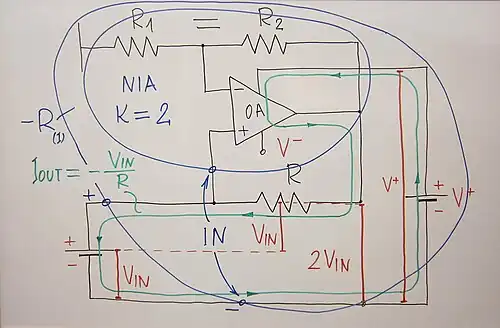 R1 = R2
NIA
K = 2
-R(1)
- OA +
V-
IOUT = - VIN/R
R
V+
+ - V+
+
IN
VIN
2VIN
+ -
VIN
-